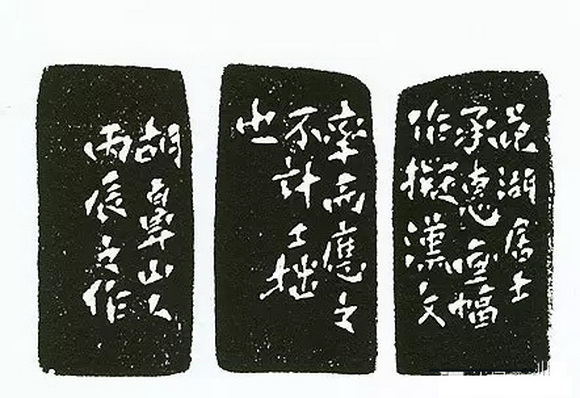 范湖居士
承惠畫幅
作擬漢文
率而應之
不計工拙
也
胡鼻山人
丙辰之作